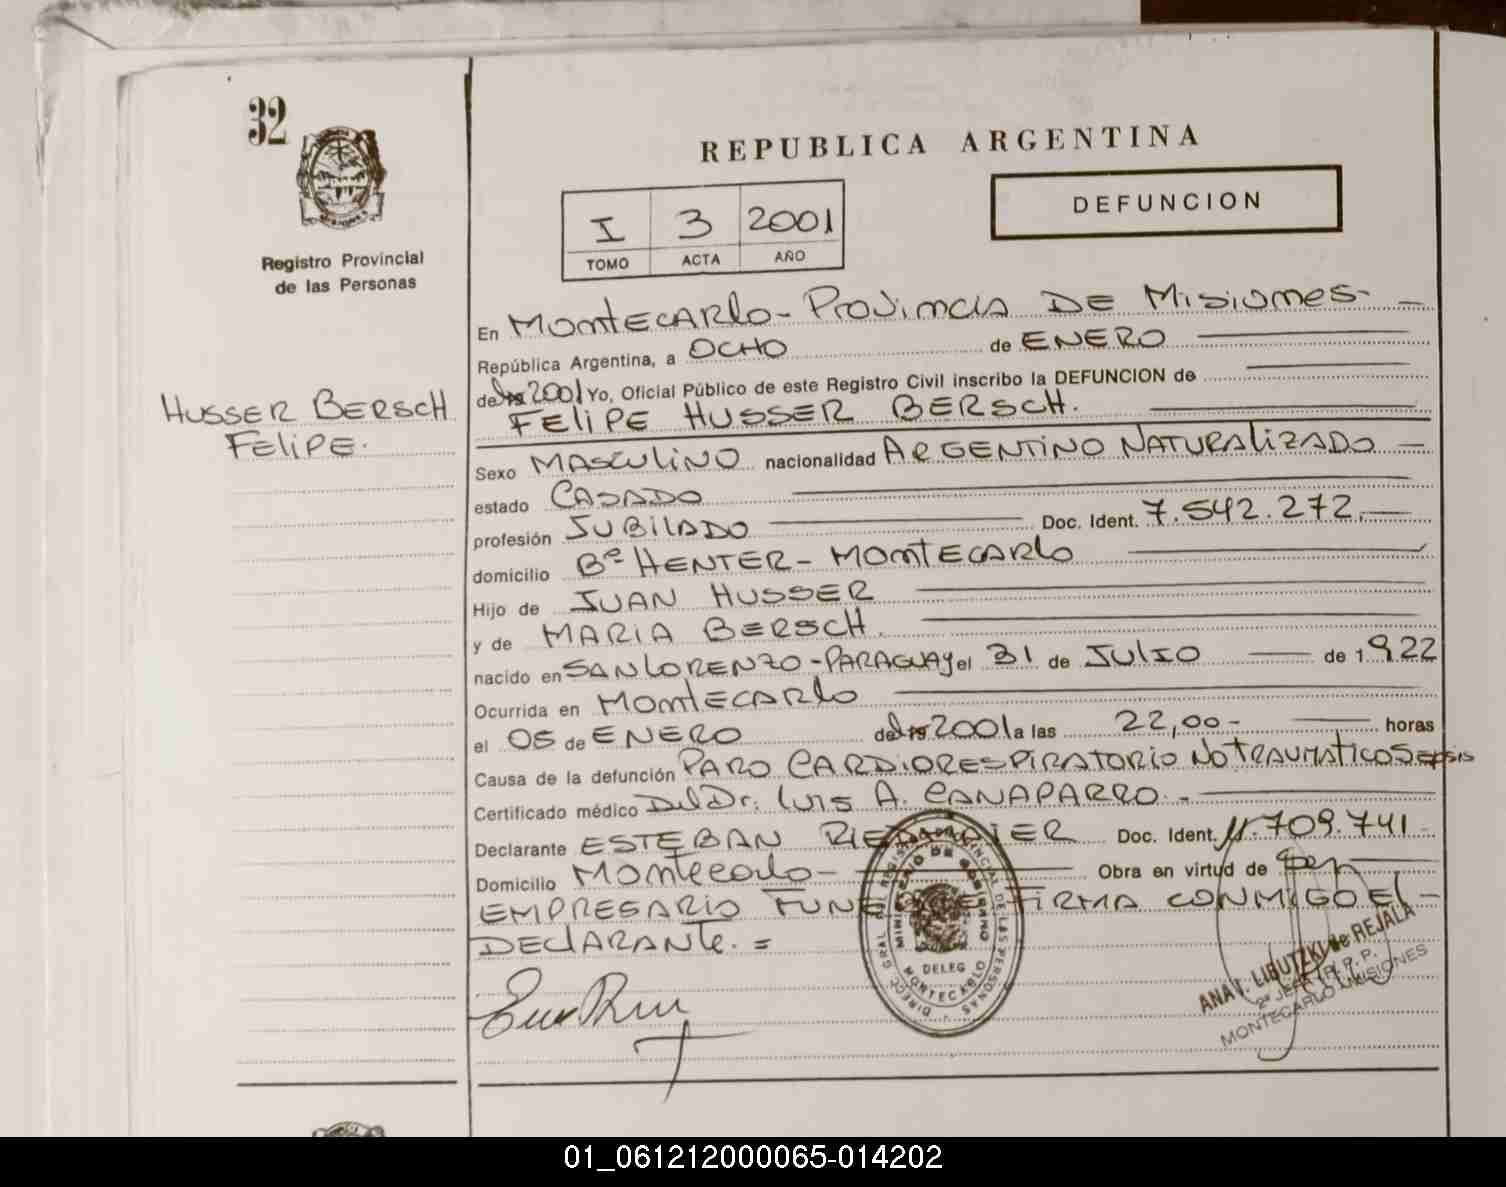 32
Registro Provincial
de las Personas
HUSSER BERSCH
FELIPE.
REPUBLICA ARGENTINA
I 3 2001
TOMO ACTA AÑO
DEFUNCION
En MONTECARLO - PROVINCIA DE MISIONES -
República Argentina, a OCHO de ENERO
de 2001 Yo, Oficial Público de este Registro Civil inscribo la DEFUNCION de
FELIPE HUSSER BERSCH.
Sexo MASCULINO nacionalidad ARGENTINO NATURALIZADO
estado CASADO
profesión JUBILADO Doc. Ident. 7.542.272.
domicilio Bº HENTER - MONTECARLO
Hijo de JUAN HUSSER
y de MARIA BERSCH.
nacido en SAN LORENZO - PARAGUAY el 31 de JULIO de 1.922
Ocurrida en MONTECARLO
el 05 de ENERO de 2001 a las 22,00- horas
Causa de la defunción PARO CARDIORESPIRATORIO NO TRAUMATICO SEPSIS
Certificado médico Del Dr. LUIS A. CANAPARRO. -
Declarante ESTEBAN Doc. Ident. 11.709.741-
Domicilio Montecarlo - Obra en virtud de ser
EMPRESARIO FUNEBRE FIRMA CONMIGO El -
DECLARANTE. =
DIRECC. GRAL. DEL REGISTRO PROVINCIAL DE LAS PERSONAS
MINISTERIO DE GOBIERNO
DELEG
MONTECARLO
ANA I. LIBUTZKI de REJALA
2ª JEFA R. P. P.
MONTECARLO MISIONES
01_061212000065-014202